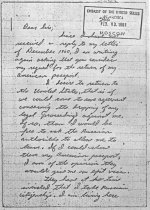 EMBASSY OF THE UNITED STATES
OF AMERICA
FEB 13 1961
MOSCOW
Dear Sirs,
Since I have not
received a reply to my letter
of December 1960, I am writing
again asking that you consider
my request for the return of my
American passport.
I desire to return to
the United States, that is if
we could come to some agreement
concerning the dropping of any
legal proceedings against me.
If so, then I would be
free to ask the Russian
authorities to allow me to
leave. If I could show
them my American passport,
I am of the opinion they
would give me an exit visa.
They have at no time
insisted that I take Russian
citizenship. I am living here